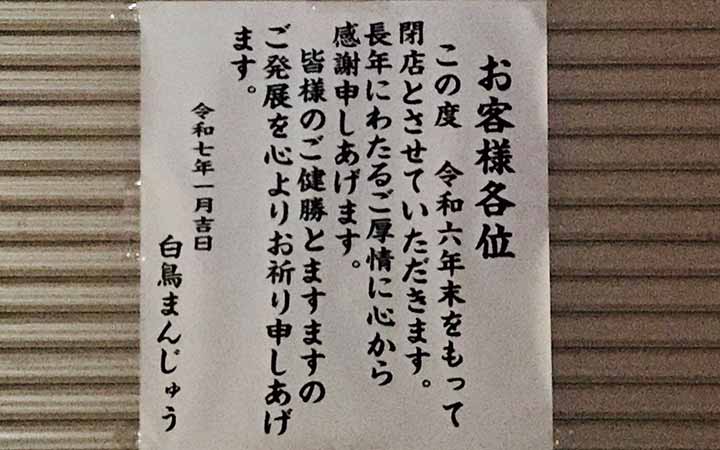 お客様各位
この度　令和六年末をもって
閉店とさせていただきます。
長年にわたるご厚情に心から
感謝申しあげます。
皆様のご健勝とますますの
ご発展を心よりお祈り申しあげ
ます。
令和七年一月吉日
白鳥まんじゅう